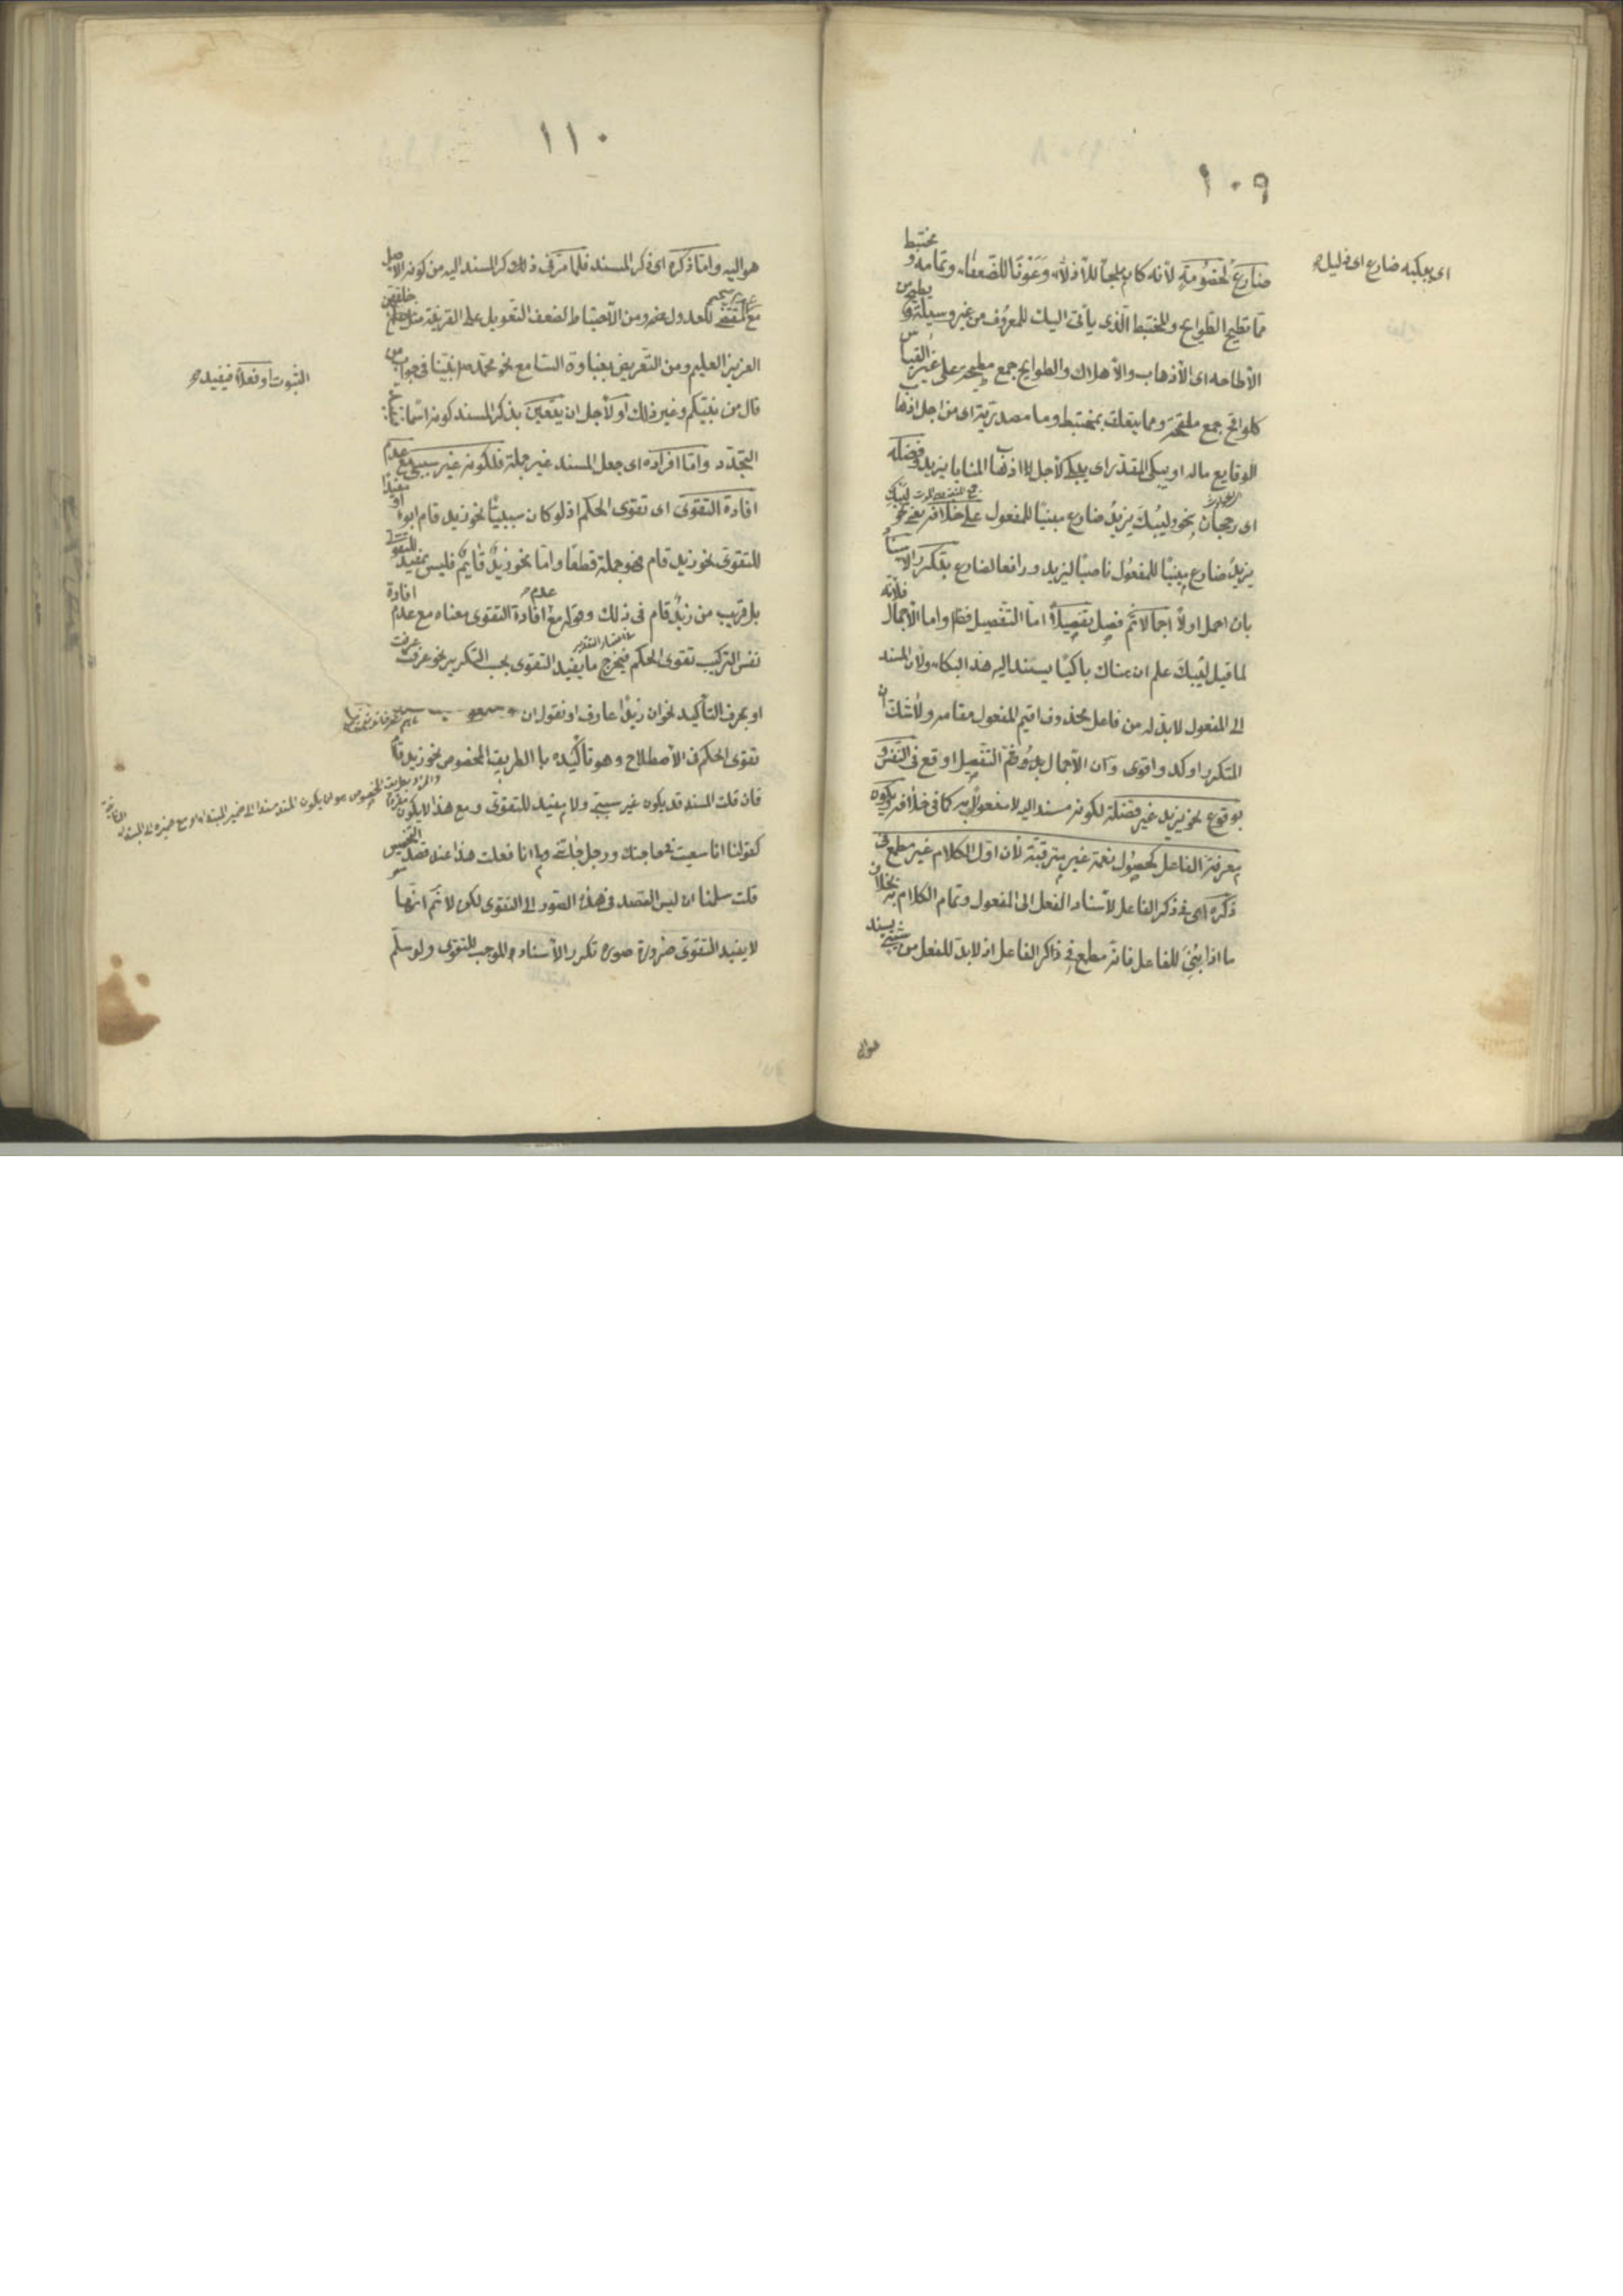 ١٠٩
اى يبكيه ضارع اى ذليل
ضارع لخصومة لأنه كان ملجأ للأذلاء وعونا للضعفاء وتمامه ومختبط
مما تطيح الطوايح والمختبط الذى يأتى اليك للمعروف من غير وسيلة وتطيح من
الأطاحه اى الأذهاب والأهلاك والطوايح جمع مطيحة على غير القياس
كلواقح جمع ملقحة ومما يتعلق بمختبط وما مصدرية اى من اجل اذهاب
الوقايع ماله او يبكى المقدر اى يبكى لأجل اذهاب المنايا يزيد وفضله
اى رجحان نحو ليبك يزيد ضارع مبنيا للمفعول على خلافه يعنى نحو ليبك
يزيد ضارع مبنيا للمفعول ناصبا ليزيد ورافعا لضارع بتكرر الاسناد
بان اجمل اولا اجمالا ثم فصل تفصيلا اما التفصيل فظ واما الأجمال فلأنه
لما قيل ليبك علم ان هناك باكيا يسند اليه هذا البكاء ولان المسند
الى المفعول لابد له من فاعل محذوف اقيم المفعول مقامه ولا شك ان
المتكرر اوكد واقوى وان الأجمال ثم التفصيل اوقع فى النفس و
بوقوع نحو يزيد غير فضلة لكونه مسندا اليه لا مفعولا به كما فى خلافه وبكون
معرفة الفاعل كحصول نعمة غير مترقبة لأن اول الكلام غير مطمع فى
ذكره اى فى ذكر الفاعل لأسناد الفعل الى المفعول وتمام الكلام به بخلاف
ما اذا بنى للفاعل فانه مطمع فى ذكر الفاعل اذ لابد للفعل من شىء يسند
هو اليه
١١٠
هو اليه واما ذكره اى ذكر المسند فلما مر فى ذكر المسند اليه من كونه الاصل
مع عدم المقتضى للعدول عنه ومن الأحتياط لضعف التعويل على القرينة مثل خلقهن
العزيز العليم ومن التعريض بغباوة السامع نحو محمد نبينا فى جواب من
قال من نبيكم وغير ذلك او لأجل ان يتعين بذكر المسند كونه اسما فيفيد
الثبوت او فعلا فيفيد
التجدد واما افراده اى جعل المسند غير جملة فلكونه غير سببى مع عدم
افادة التقوى اى تقوى الحكم اذ لو كان سببيا نحو زيد قام ابوه او مفيدا
للتقوى نحو زيد قام فهو جملة قطعا واما نحو زيد قايم فليس بمفيد للتقوى
بل قريب من زيد قام فى ذلك وقوله مع عدم افادة التقوى معناه مع عدم افادة
نفس التركيب تقوى الحكم فيخرج ما يفيد التقوى بحسب التكرير نحو عرفت عرفت
او بحرف التأكيد نحو ان زيدا عارف او نقول ان
تقوى الحكم فى الأصطلاح وهو تأكيده بالطريق المخصوص نحو زيد قام
فان قلت المسند قد يكون غير سببى ولا مفيد للتقوى ومع هذا لا يكون مفردا
كقولنا انا سعيت فى حاجتك ورجل جاءنى وما انا فعلت هذا عند قصد التخصيص
قلت سلمنا ان ليس القصد فى هذه الصور الى التقوى لكن لا نم انها
لا يفيد التقوى ضرورة صورة تكرر الأسناد الموجب للتقوى ولو سلم